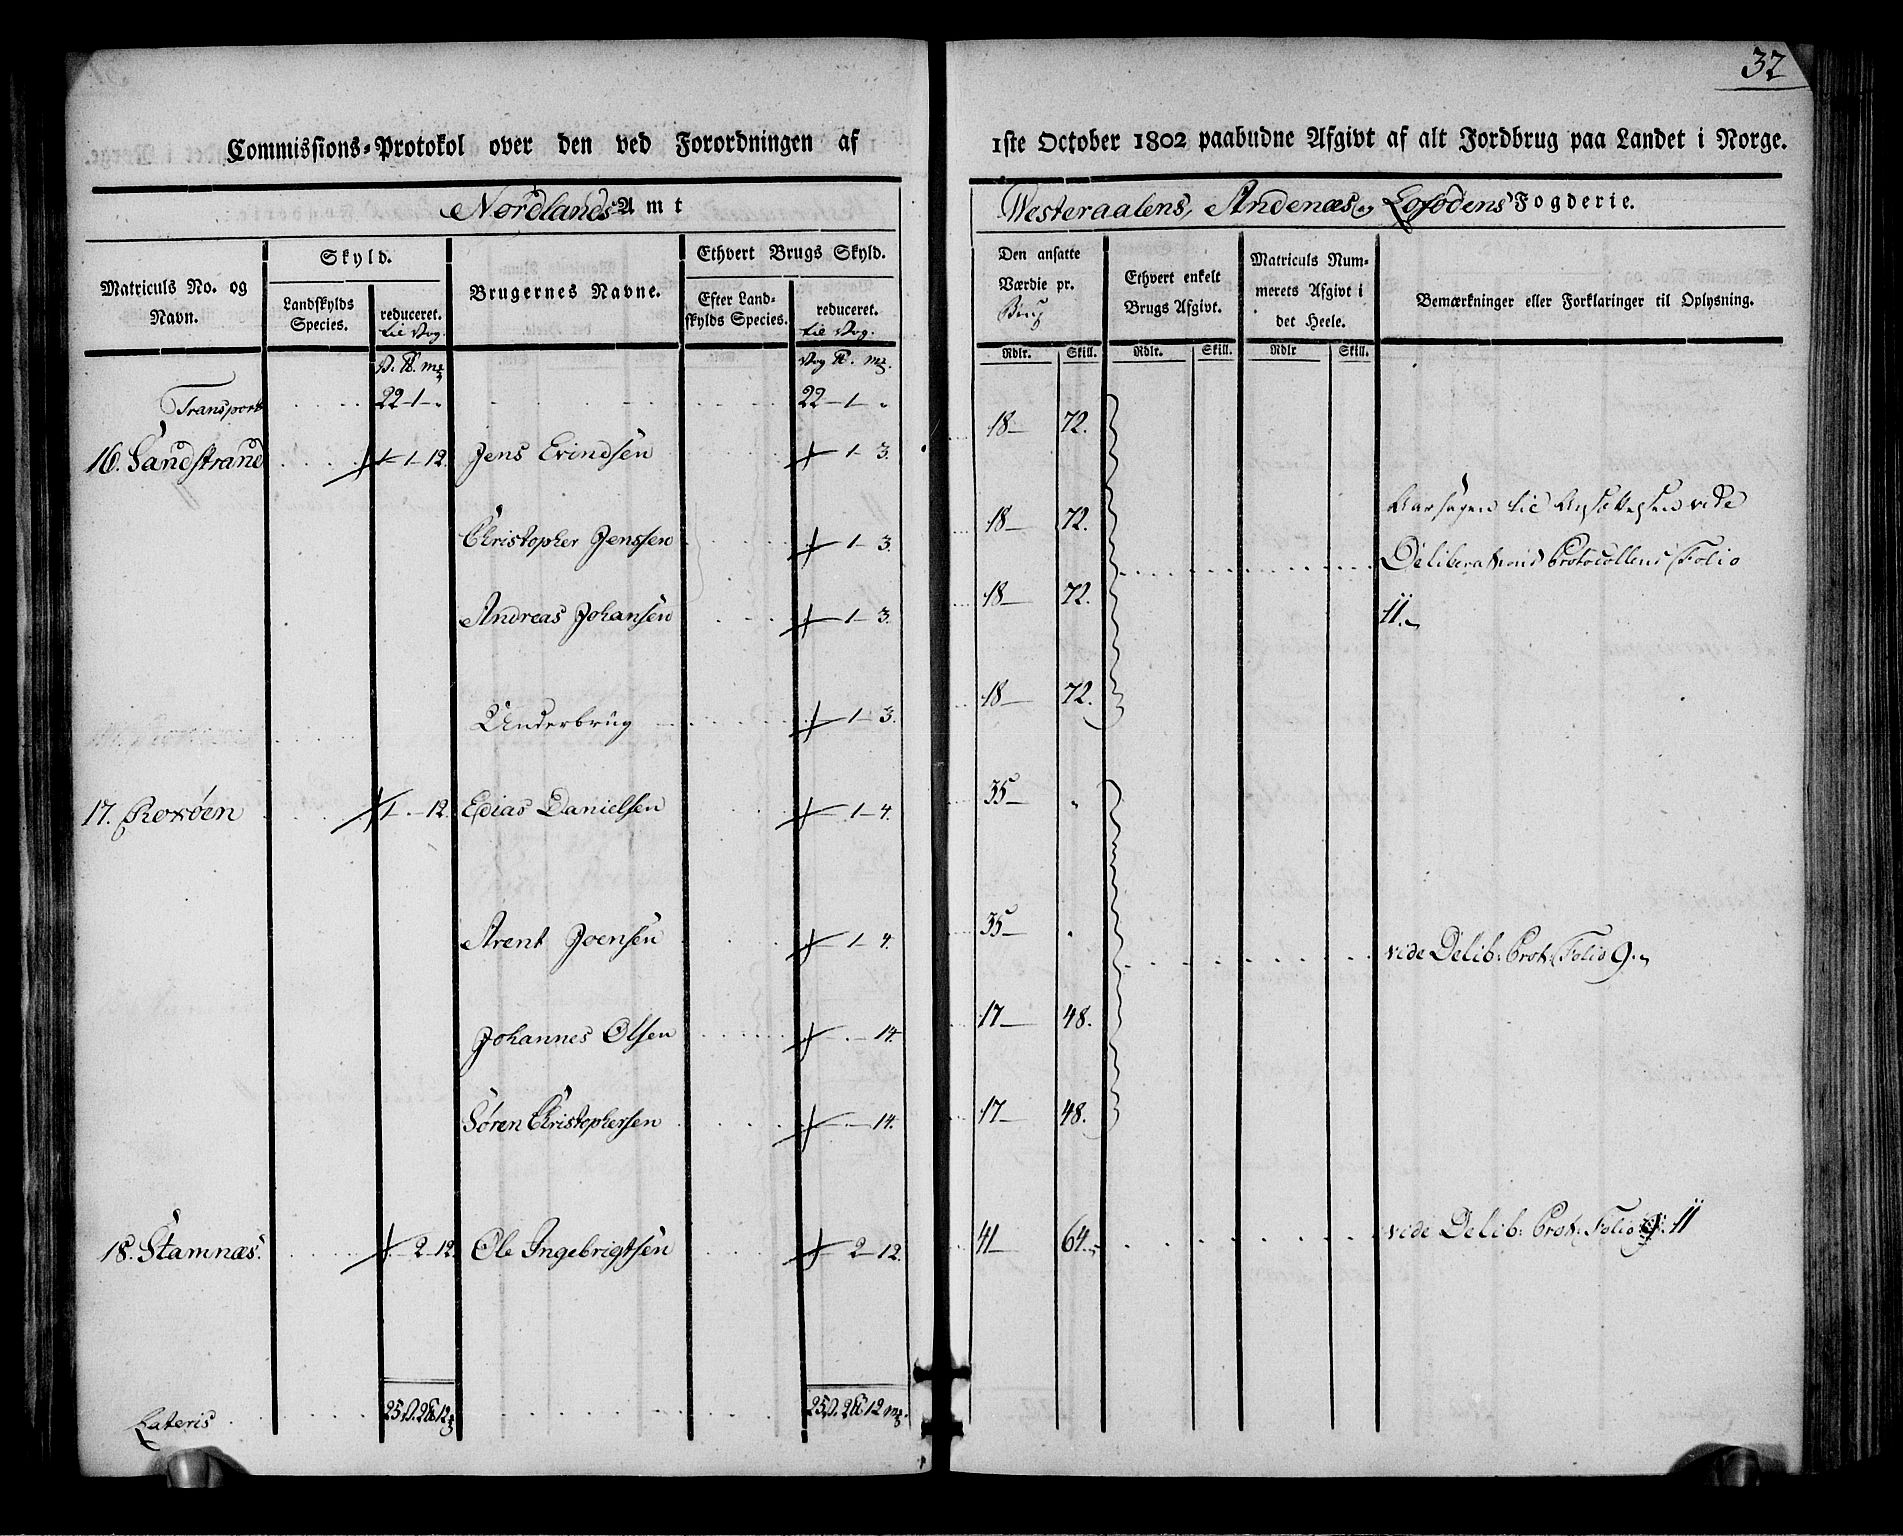 32
Commissions-Protokol over den ved Forordningen af 1ste October 1802 paabudne Afgivt af alt Jordbrug paa Landet i Norge.
Nordlands Amt
Westeraalens, Andenæs og Lofodens Fogderie.
Matriculs No. og Navn.
Skyld.
Landskylds Species.
reduceret. til Vog.
Brugernes Navne.
Ethvert Brugs Skyld.
Efter Landskylds Species.
reduceret. til Vog.
Den ansatte Værdie pr. Brug
Ethvert enkelt Brugs Afgivt.
Matriculs Nummerets Afgivt i det Heele.
Bemærkninger eller Forklaringer til Oplysning.
Rdlr. Skill. Rdlr. Skill. Rdlr Skill.
V. ℔. mk Vog ℔. mk.
Transport 22-1-„ 22-1-„
16. Sandstrand 1-1-12. Jens Evindsen 1-3. 18- 72.
Christopher Jenssen 1-3. 18- 72.
Aarsagen til Ansættelsen vide
Deliberations Protocollens Folio
11.
Andreas Johansen 1-3. 18- 72.
Underbrug 1-3. 18- 72.
17. Roxöen 1-.-12. Edias Danielsen 1-4. 35- „
Arent Joensen 1-4. 35- „ vide Delib: Prot: Folio 9.
Johannes Olsen .-14. 17- 48.
Søren Christophersen .-14. 17- 48.
18. Stamnæs. 2-12. Ole Ingebrigtsen 2-12. 41- 64. vide Delib: Prot: Folio 11
Lateris 25V. 2℔ 12 25V. 2℔ 12 mk.